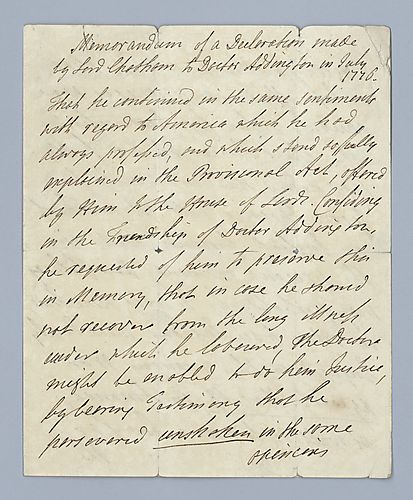 Memorandum of a Decleration made
by Lord Chatham to Doctor Addington in July
1776.
That he continued in the same sentiments
with regard to America which he had
always professed, and which stand so fully
explained in the Provisional Act, offered
by Him to the House of Lords. Confiding
in the Friendship of Doctor Addington,
he requested of him to preserve this
in Memory, that in case he should
not recover from the long illness
under which he laboured, the Doctor
might be enabled to do him Justice,
by bearing Testimony that he
persevered unshaken in the same
opinions